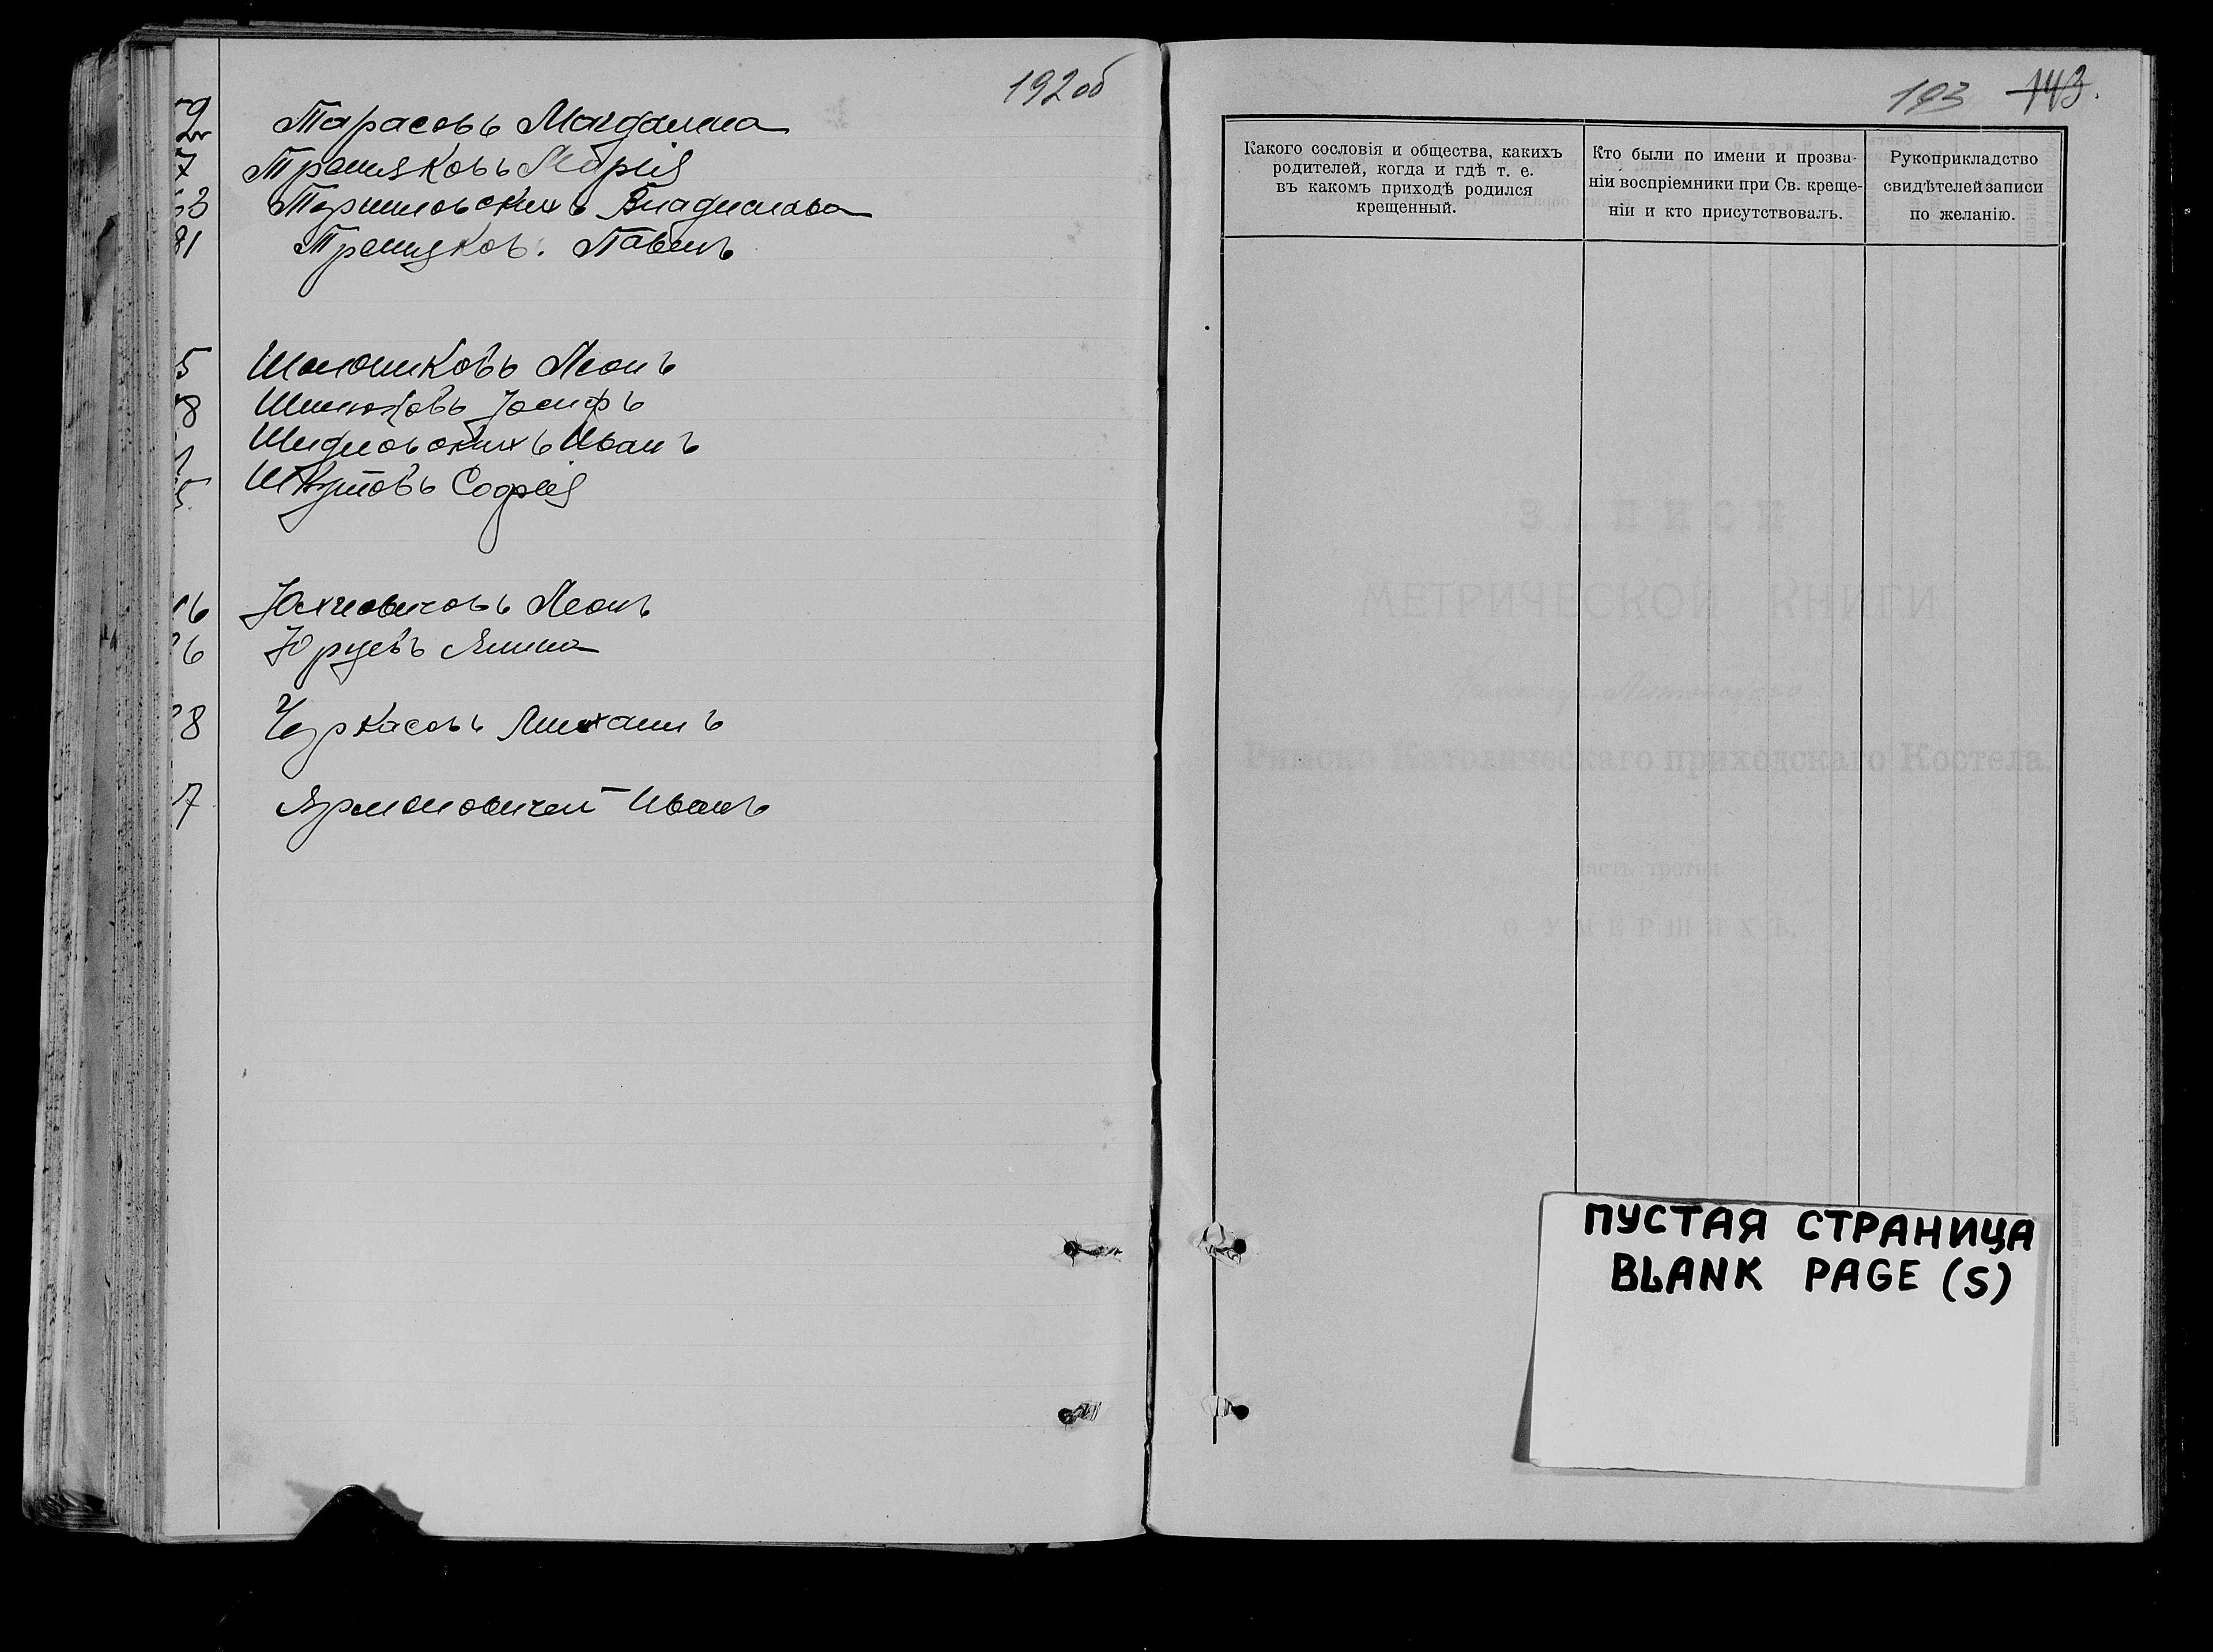 192 об
Тарасовъ Магдалина
Третяковъ Марія
Тершиловскихъ Владислава
81 Третяков. Павелъ
5 Шалюшковъ Леонъ
8 Іосифъ
Шидловскихъ Иванъ
Шкутовъ Софія
16 Юхневичовъ Леонъ
6 Юруевъ Янина
8 Черкасовъ Михаилъ
7 Ярмоловичей Иванъ
193 143.
Какого сословія и общества, какихъ
родителей, когда и гдѣ т. е.
въ какомъ приходѣ родился
крещенный.
Кто были по имени и прозва-
ніи воспріемники при Св. креще-
ніи и кто присутствовалъ.
Рукоприкладство
свидѣтелей записи
по желанію.
ЗАПИСИ
МЕТРИЧЕСКОЙ КНИГИ
Римско Католическаго приходскаго Костела.
Часть третья
О УМЕРШИХЪ.
ПУСТАЯ СТРАНИЦА
BLANK PAGE (S)